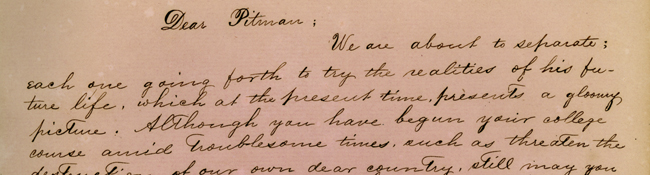 Dear Pitman;
We are about to separate;
each one going forth to try the realities of his fu-
ture life, which at the present time, presents a gloomy
picture. Although you have begun your college
course amid troublesome times, such as threaten the
destruction of our own dear country, still may you